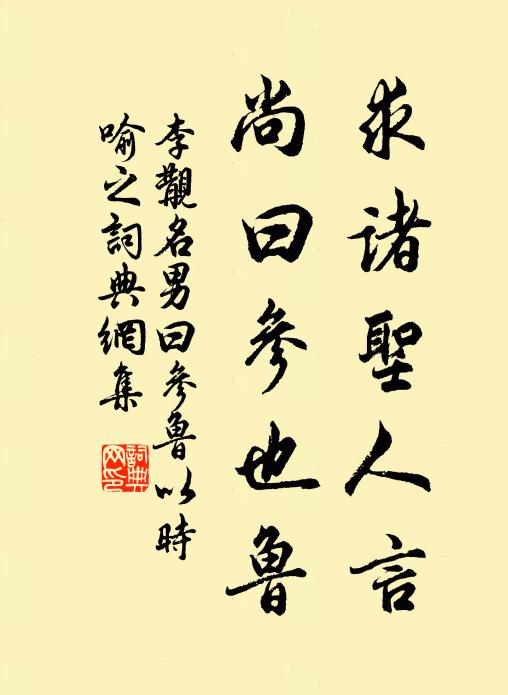 求諸聖人言
尚曰參也魯
李覯名男曰參魯以時
喻之詞典網集
詞典
网印